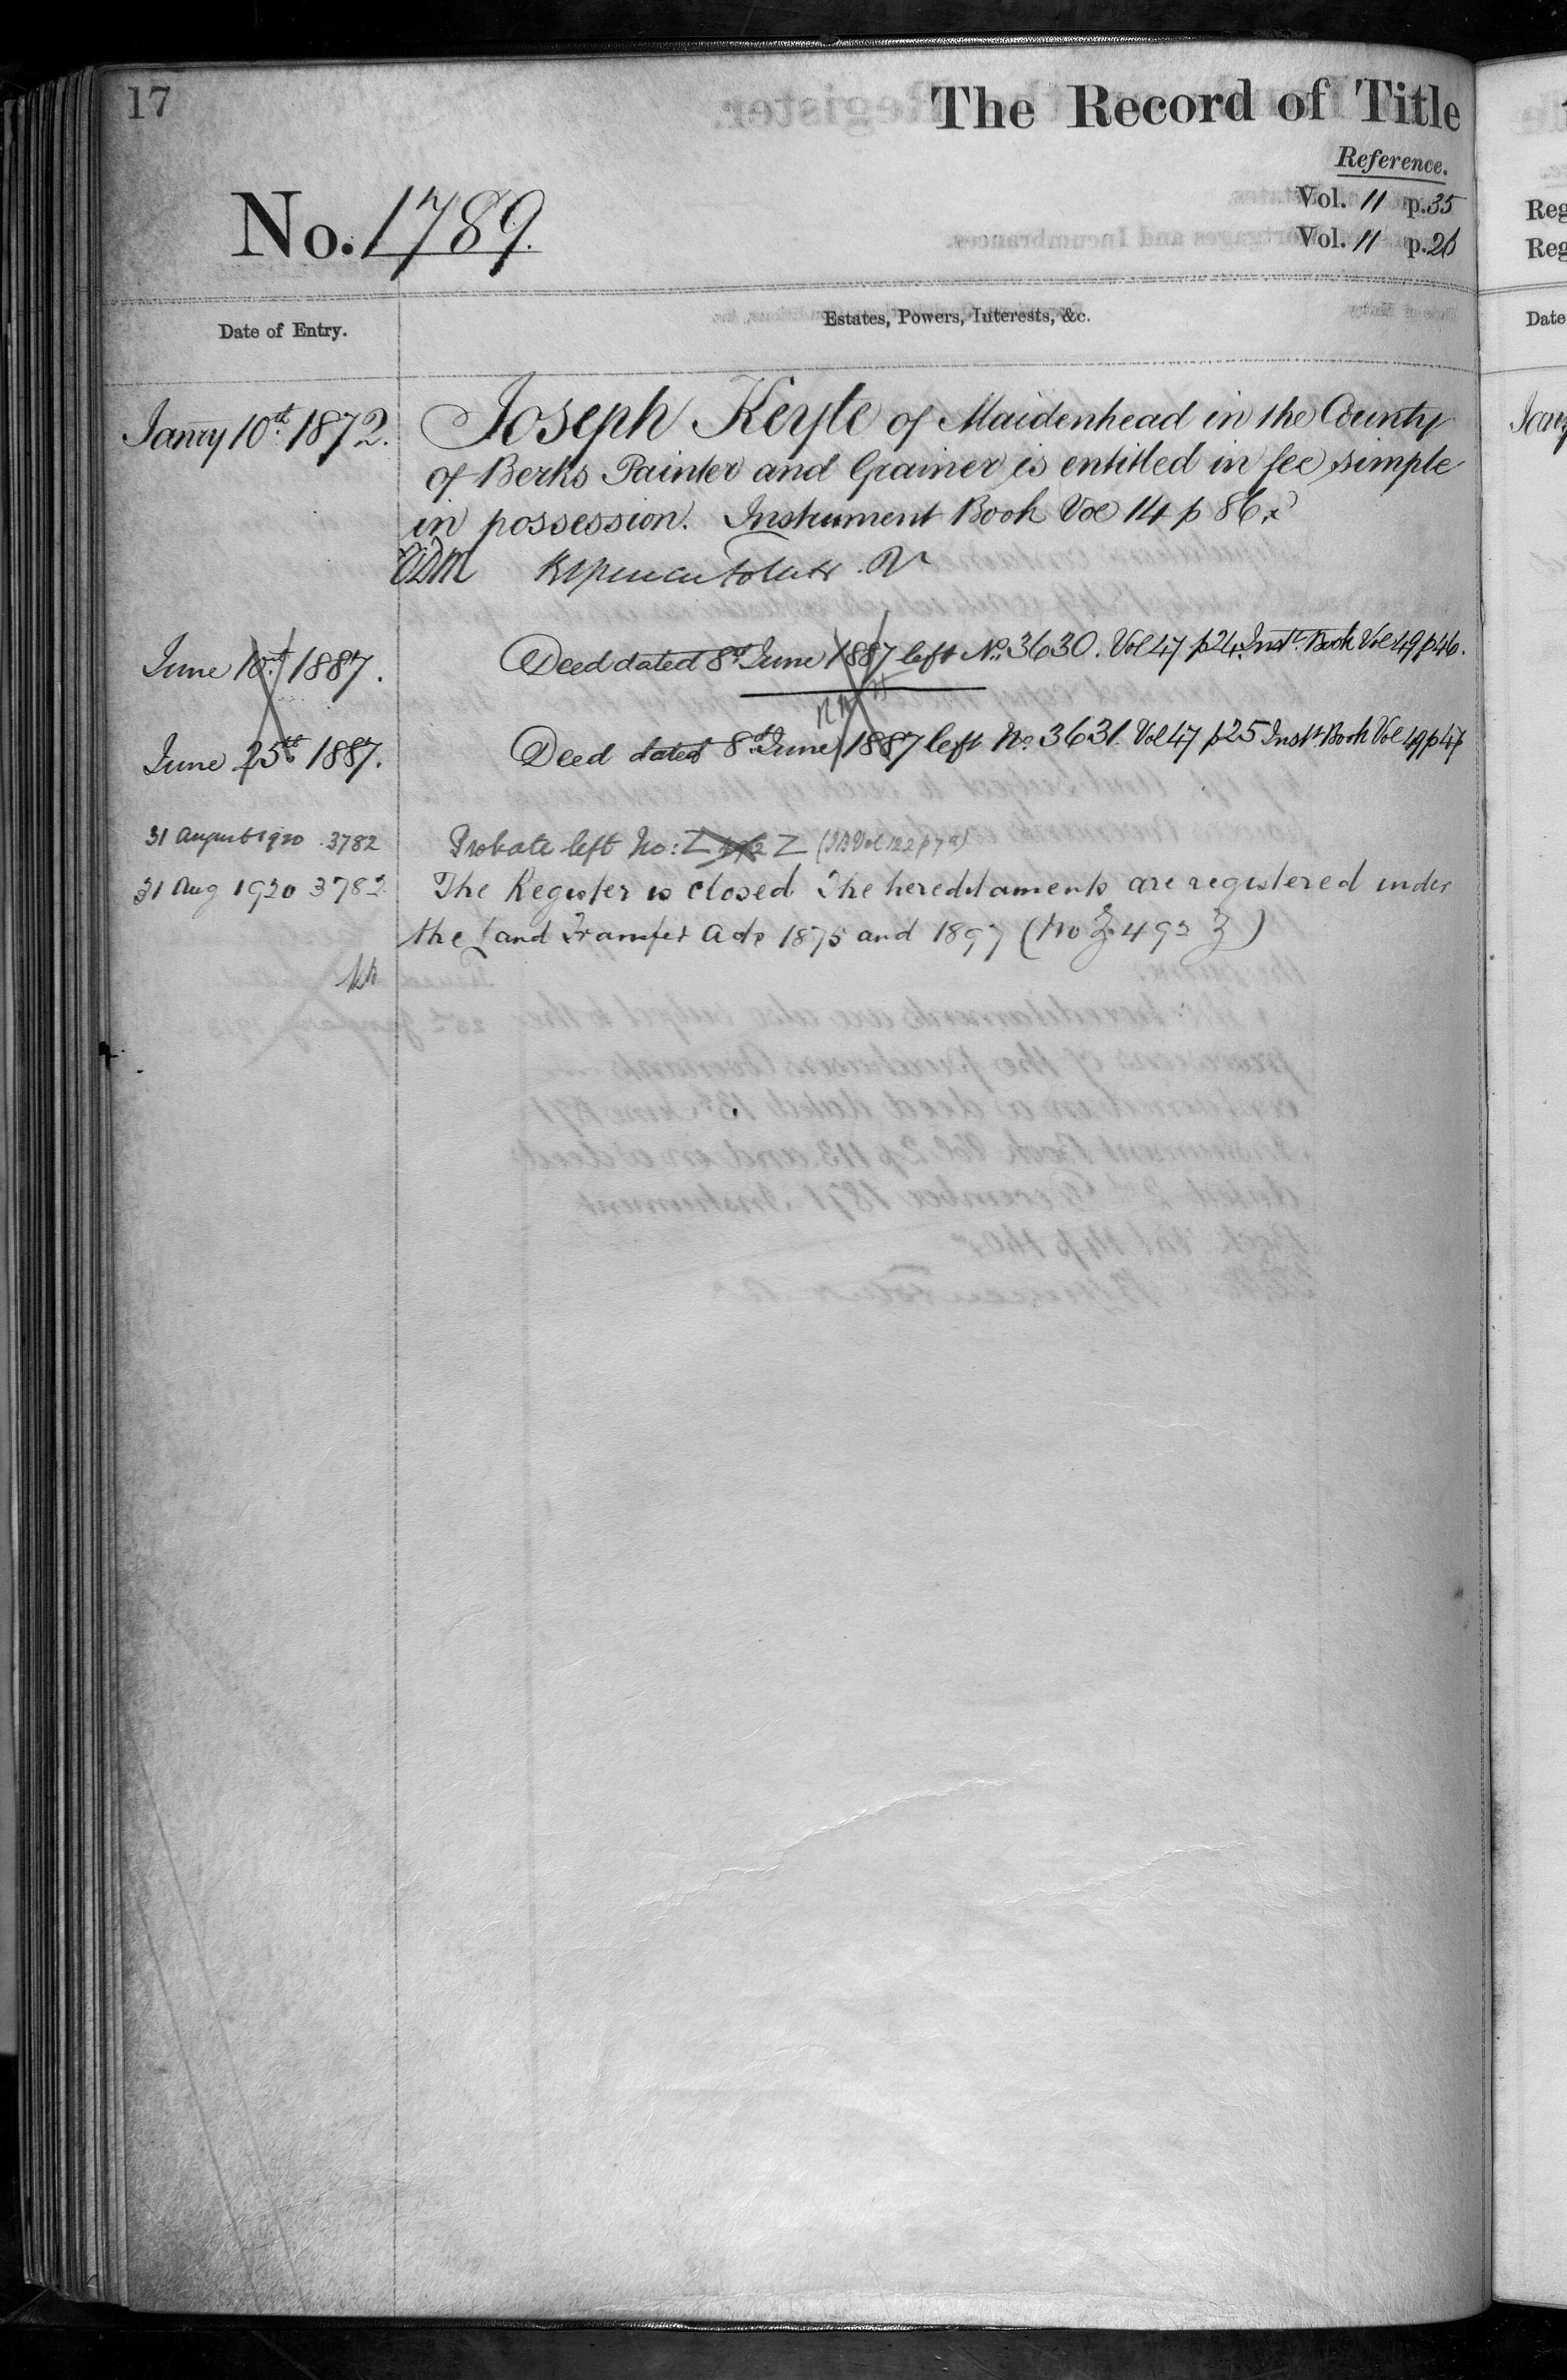 17
The Record of Title
Reference.
Vol. 11 p. 35
No. 1789.
Vol. 11 p. 26
Date of Entry.
Estates, Powers, Interests, &c.
Janry 10th 1872.
Joseph Keyte of Maidenhead in the County
of Berks Painter and Grainer is entitled in fee simple
in possession. Instrument Book Vol 14 p 86.
June 1887.
Deed dated 8th June 1887 left No. 3630. Vol 47 p24. Instt. Book Vol 49 p46.
June 25th 1887.
Deed dated 8th June 1887 left No. 3631. Vol 47 p25 Instt. Book Vol 49 p47
31 August 1920 3782
Probate left No: Z 492 Z
31 Aug 1920 3782
The Register is closed The hereditaments are registered under
the Land Transfer Acts 1875 and 1897 (No Z 492 Z)